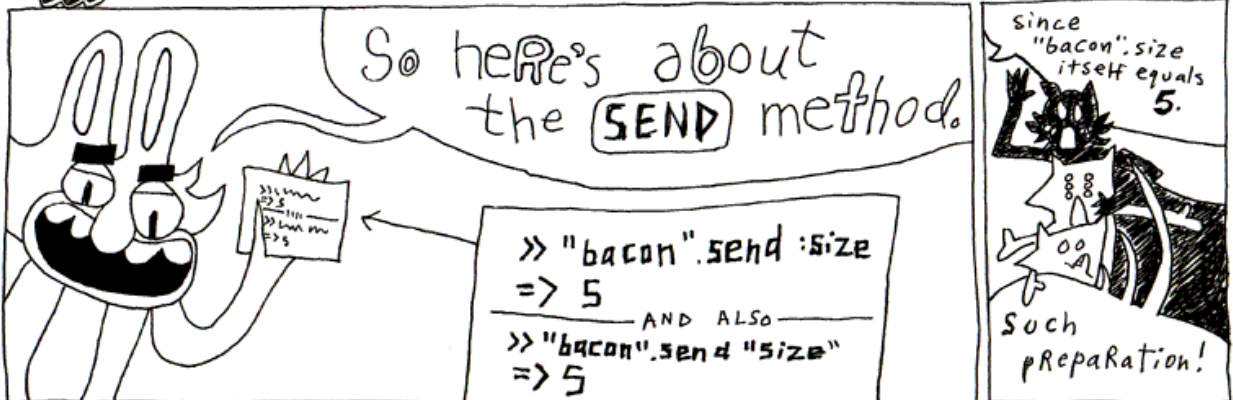 So heRe's about
the SEND method.
>> "bacon".send :size
=> 5
AND ALSO
>> "bacon".send "size"
=> 5
since
"bacon".size
itself equals
5.
Such
pRepaRation!